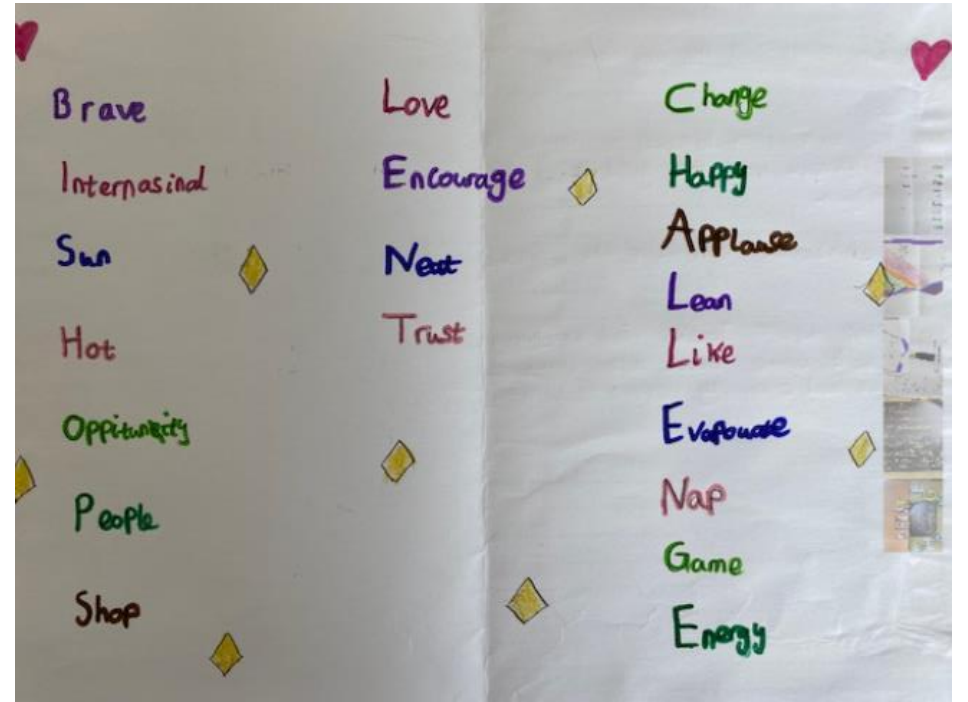 Brave
Internasinal
Sun
Hot
Oppitunity
People
Shop
Love
Encourage
Neat
Trust
Change
Happy
Applause
Lean
Like
Evapourate
Nap
Game
Energy